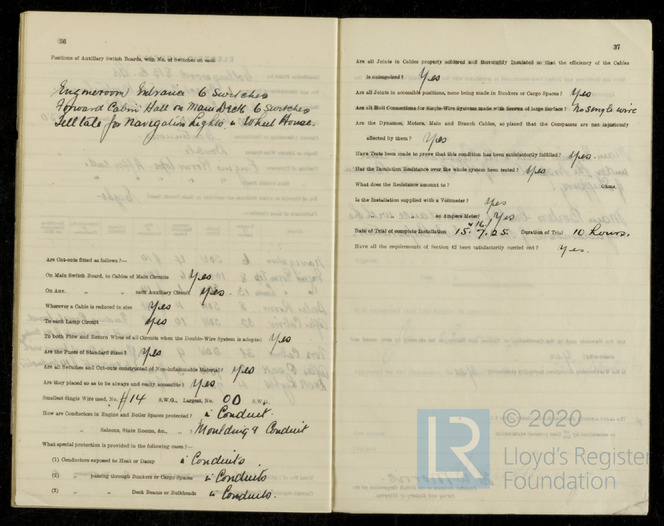 36
Positions of Auxiliary Switch Boards, with No. of Switches on each
Engineroom Entrance 6 Switches
Forward Cabin Hall on Main Deck 6 Switches
Telltale for Navigation Lights in Wheel House.
Are Cut-outs fitted as follows?—
On Main Switch Board, to Cables of Main Circuits Yes
On Aux. " " each Auxiliary Circuit Yes.
Wherever a Cable is reduced in size Yes
To each Lamp Circuit Yes
To both Flow and Return Wires of all Circuits when the Double-Wire System is adopted Yes
Are the Fuses of Standard Sizes? Yes
Are all Switches and Cut-outs constructed of Non-inflammable Material? Yes
Are they placed so as to be always and easily accessible? Yes
Smallest Single Wire used, No. #14 S.W.G., Largest, No. 00 S.W.G.
How are Conductors in Engine and Boiler Spaces protected? in Conduit.
" Saloons, State Rooms, &c., " ? Moulding & Conduit
What special protection is provided in the following cases?—
(1) Conductors exposed to Heat or Damp in Conduits.
(2) " passing through Bunkers or Cargo Spaces in Conduits
(3) " " Deck Beams or Bulkheads in Conduits.
37
Are all Joints in Cables properly soldered and thoroughly insulated so that the efficiency of the Cables
is unimpaired? Yes
Are all Joints in accessible positions, none being made in Bunkers or Cargo Spaces? Yes.
Are all Hull Connections for Single-Wire Systems made with Screws of large surface? No single wire
Are the Dynamos, Motors, Main and Branch Cables, so placed that the Compasses are not injuriously
affected by them? Yes
Have Tests been made to prove that this condition has been satisfactorily fulfilled? Yes.
Has the Insulation Resistance over the whole system been tested? Yes
What does the Resistance amount to? Ohms.
Is the Installation supplied with a Voltmeter? Yes
" " an Ampere Meter? Yes
Date of Trial of complete Installation 15 & 16. 7. 25. Duration of Trial 10 hours.
Have all the requirements of Section 42 been satisfactorily carried out? Yes.
LR
© 2020
Lloyd's Register
Foundation